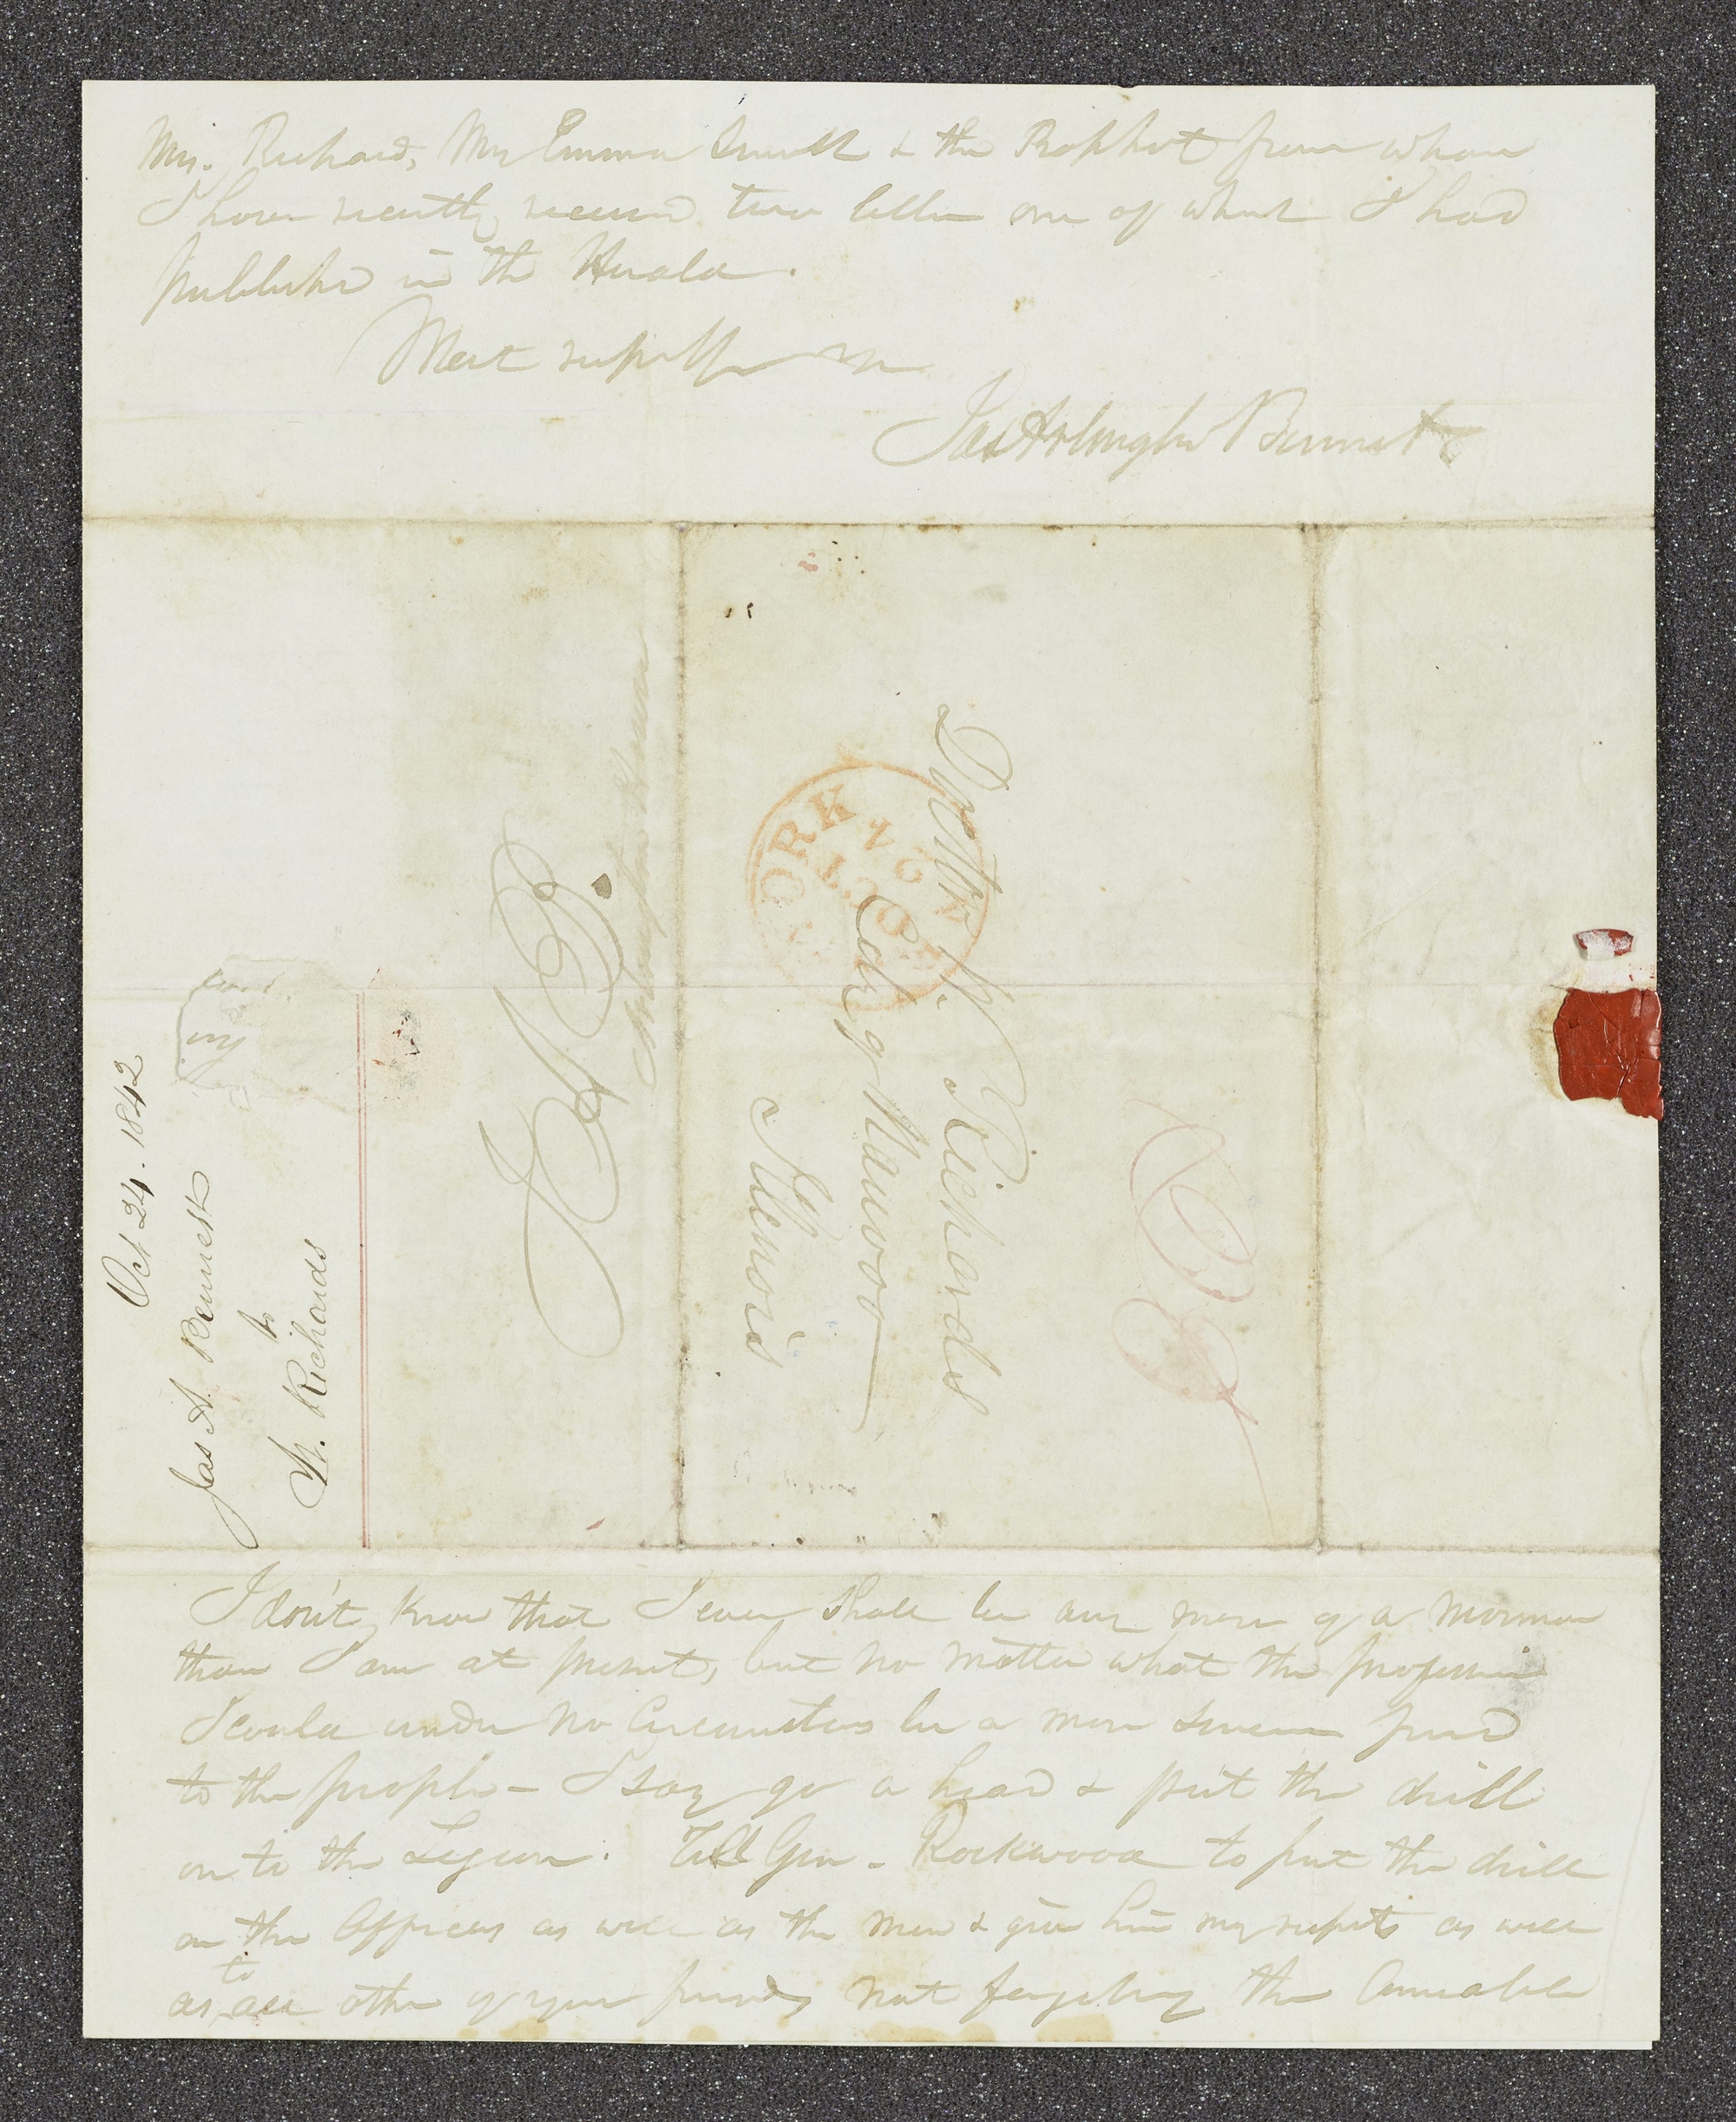 Mrs. Richards, Mrs Emma Smith & the Prophet from whom
I have recently received two letters one of which I had
published in the Herald.
Most respectfully
Jas Arlington Bennett
Oct 24. 1842
Jas A. Bennett
to
W. Richards
J A B.
NEW YORK
OCT 24
Doctor W. Richards
City of Nauvoo
Illenois
I don't know that I ever shall be any more of a mormon
than I am at present, but no matter what the profession
I could under no circumstances be a more sincere friend
to the people - I say go a head & put the drill
on to the Legion. Tell Gen - Rockwood to put the drill
on the Officers as well as the men & give him my respects as well
as to all other of your friends not forgetting the Amiable